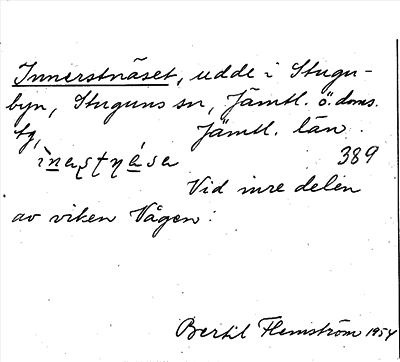 Innerstnäset, udde i Stugu-
byn, Stuguns sn, Jämtl. ö. doms.
tg, Jämtl. län.
389
Vid inre delen
av viken Vågen:
Bertil Flemström 1954